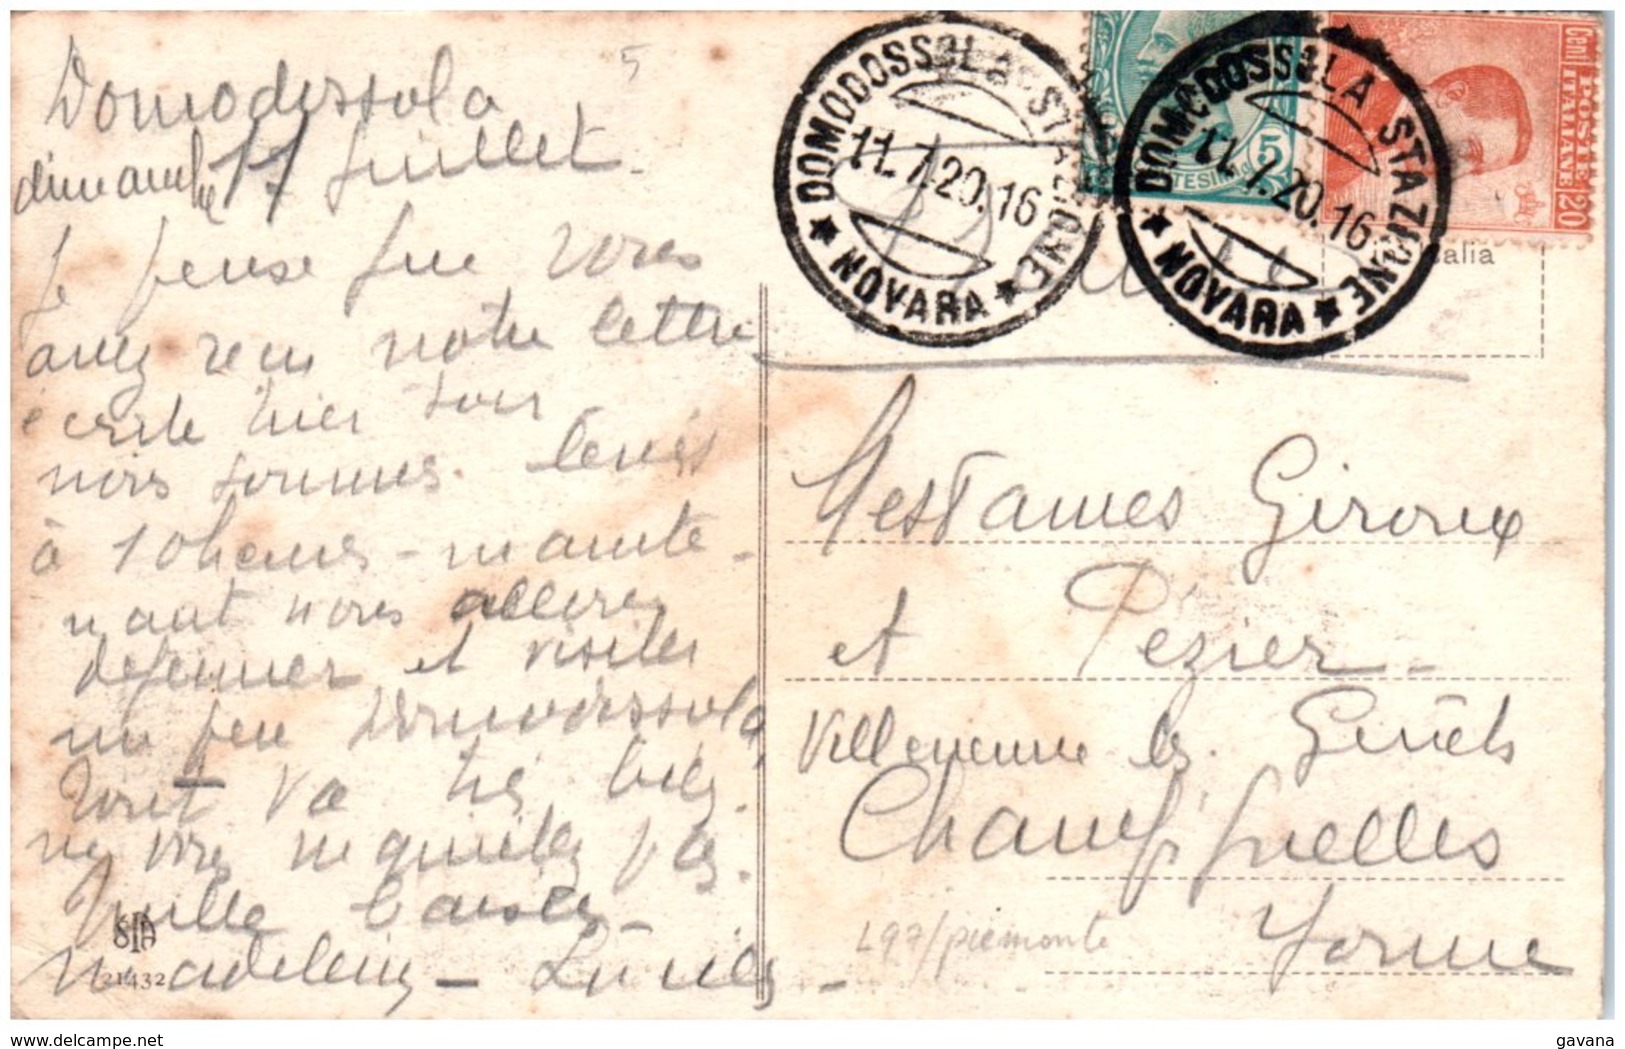 Domodossola
dimanche 11 Juillet
5
Je pense que vous
avez reçu notre lettre
écrite hier soir
nous sommes levés
à 10 heures - mainte-
nant nous allons
dejeuner et visiter
un peu Domodossola
Tout va très bien.
ne vous inquiétez pas.
Mille baisers
Madeleine -
21432
DOMODOSSOLA STAZIONE
11.7.20.16
★ NOVARA ★
DOMODOSSOLA STAZIONE
11.7.20.16
★ NOVARA ★
5
CENTESIMI
Cent 20
POSTE
ITALIANE
Italia
Mesdames Giroux
et Pezier -
Villeneuve les Genêts
Champignelles
Yonne
L97/piemonte
gavana